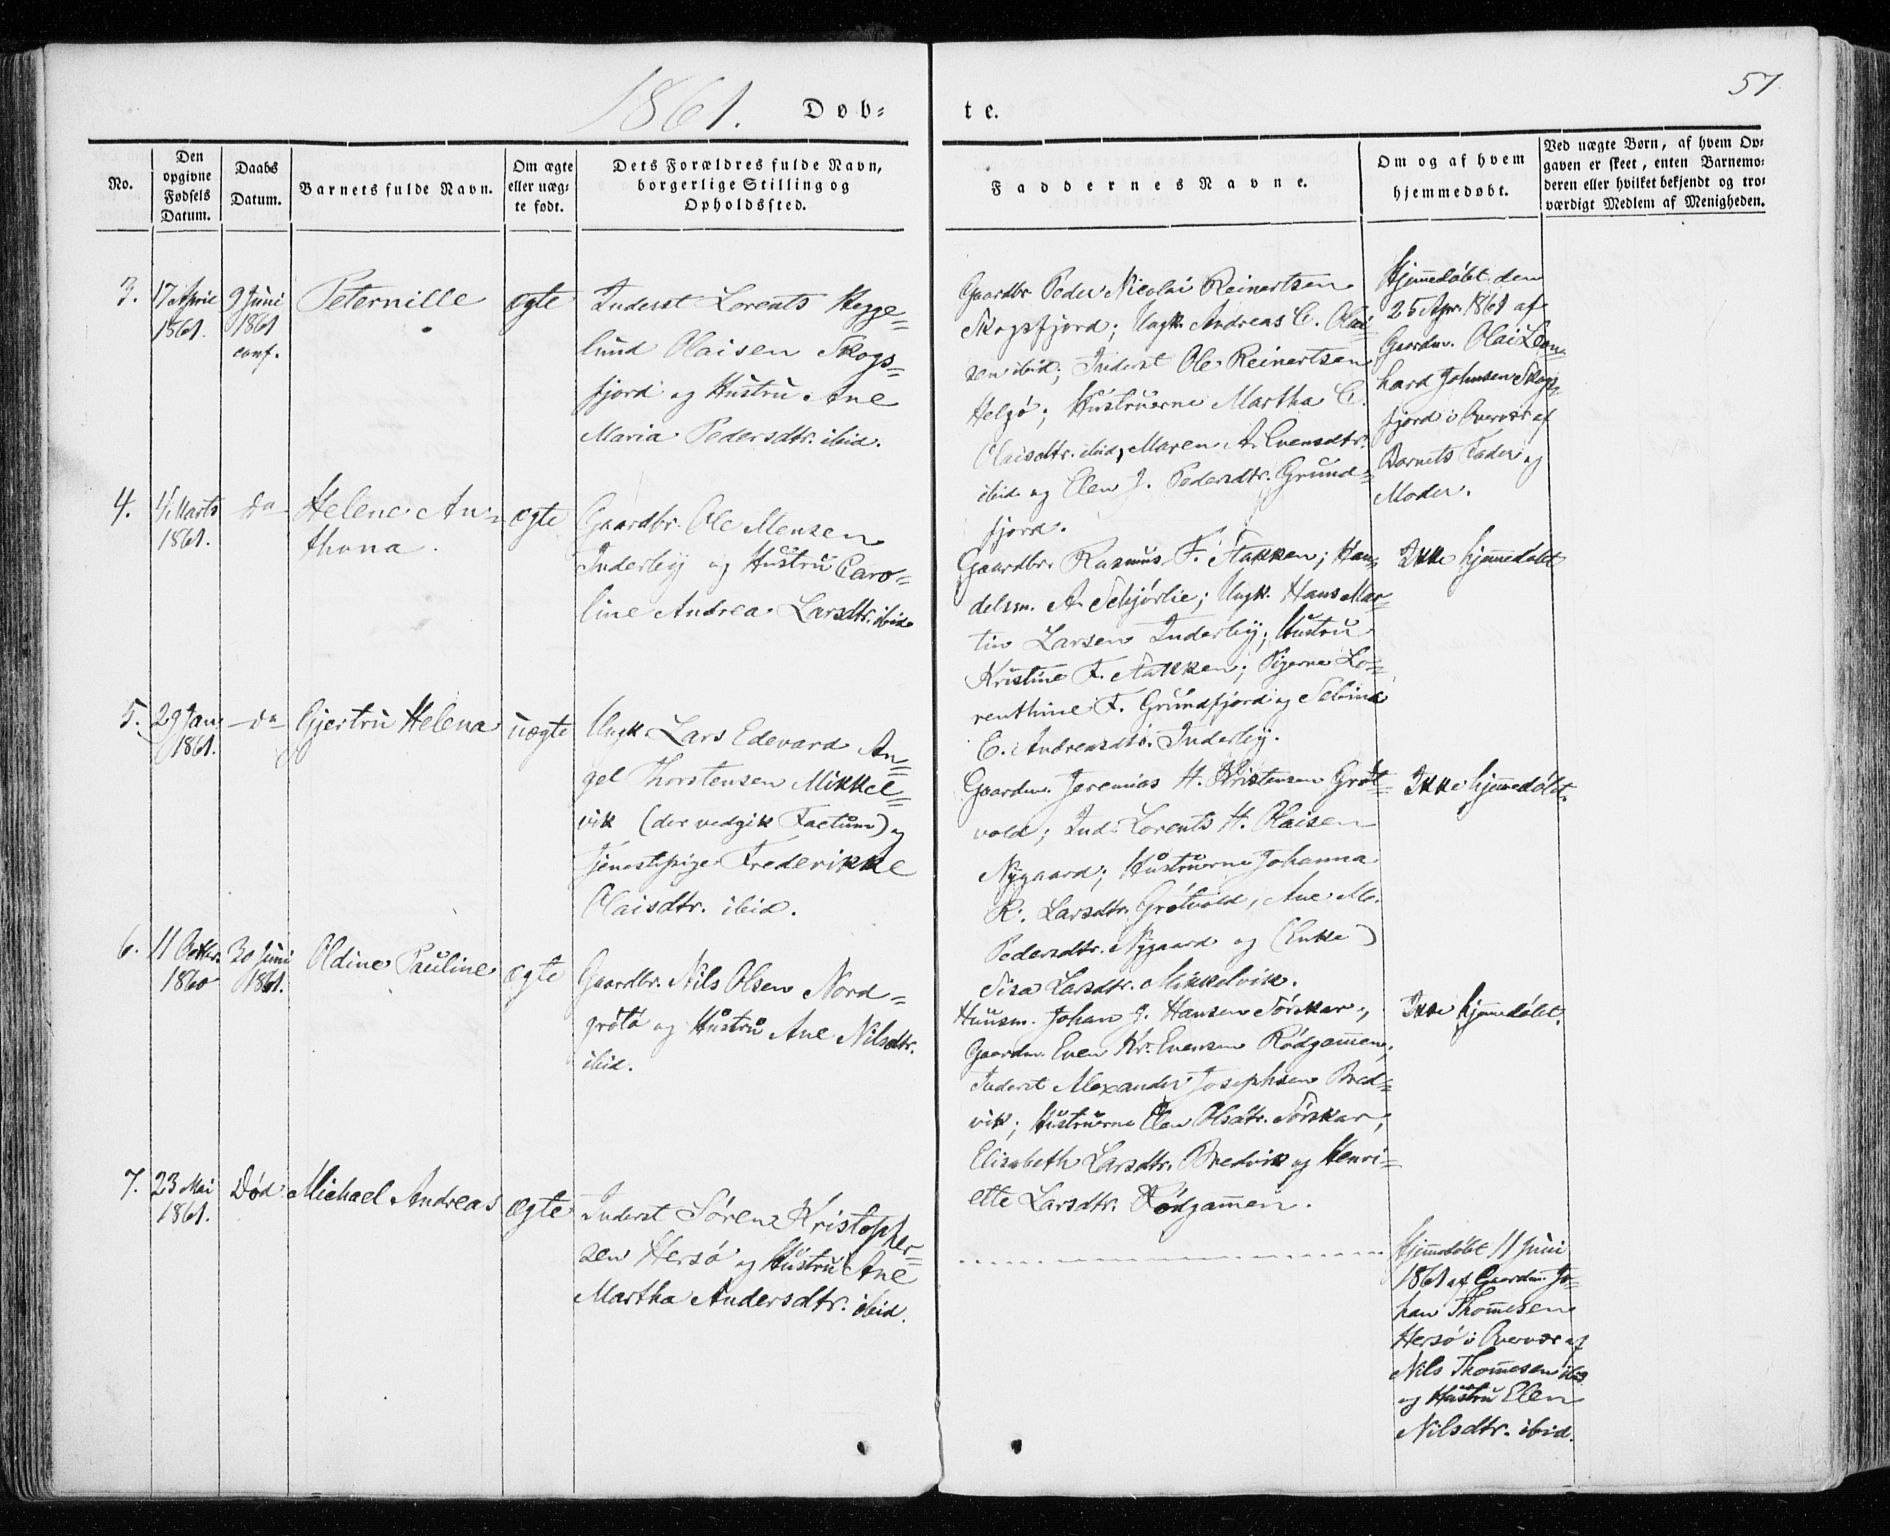 1861.
Døb=
te.
57.
No.
Den opgivne Fødsels Datum.
Daabs Datum.
Barnets fulde Navn.
Om ægte eller uæg-te født.
Dets Forældres fulde Navn, borgerlige Stilling og Opholdssted.
Faddernes Navne.
Om og af hvem hjemmedøbt.
Ved uægte Børn, af hvem Op=
gaven er skeet, enten Barnemo=
deren eller hvilket bekjendt og tro=
værdigt Medlem af Menigheden.
3.
17 April
1861.
9 Juni
1861
conf.
Peternille
ægte
Inderst Lorents Hegge=
lund Olaisen Skogs=
fjord og Hustru Ane
Maria Pedersdtr. ibid.
Gaardbr. Peder Nicolai Reinertsen
Skogsfjord; Ungk. Andreas C. Olai=
sen ibid; Inderst Ole Reinertsen
Helgø; Hustruerne Martha C.
Olaisdtr. ibid, Maren A. Evensdtr.
ibid og Elen J. Pedersdtr. Grund=
fjord.
Hjemedøbt den
25 Apr. 1861 af
Gaardm. Olai Leon=
hard Johnsen Skogs=
fjord i Overvær af
Barnets Fader og
Moder.
4.
Marts
1861.
do
Helene An=
thona.
ægte
Gaardbr. Ole Mensen
Inderby og Hustru Caro=
line Andrea Larsdtr. ibid
Gaardbr. Rasmus F. Stakken; Han=
delsm. A. Schjørlie; Ungk. Hans Mar=
tin Larsen Inderby; Hustru
Kristine F. Stakken; Pigerne Lo=
renthine F. Grundfjord og
E. Andreasdtr. Inderby.
Ikke hjemedøbt
5.
29 Jan
1861.
do
Gjertru Helena
uægte
Ungk. Lars Edevard An=
gel Thorstensen Mikkel=
vik (der vedgik Factum) og
Tjenestepige Frederikke
Olaisdtr. ibid.
Gaardm. Jeremias H. Kristensen Grøt=
vold; Ind. Lorents H. Olaisen
Nygaard; Hustruerne Johanna
R. Larsdtr. Grøtvold, Ane M.
Pedersdtr. Nygaard og (Enke)
Sisa Larsdtr. Mikkelvik.
Ikke hjemedøbt.
6.
11 Octbr.
1860
30 Juni
1861.
Oldine Pauline
ægte
Gaardbr. Nils Olsen Nord=
grøtø og Hustru Ane Nilsdtr.
ibid.
Huusm. Johan J. Hansen Sørskar;
Gaardm. Even Kr. Evensen Rødgamen,
Inderst Alexander Josephsen Bred=
vik; Hustruerne Elen Olsdtr. Sørskar,
Elisabeth Larsdtr. Bredvik og Henri=
ette Larsdtr. Rødgamen.
Ikke hjemedøbt.
7.
23 Mai
1861.
Død
Michael Andreas
ægte
Inderst Søren Kristopher=
sen Hersø og Hustru Ane
Martha Andersdtr. ibid.
Hjemedøbt 11 Juni
1861 af Gaardm. Jo=
han Thomesen
Hersø i Overvær af
Nils Thomesen ibid
og Hustru Elen
Nilsdtr. ibid.